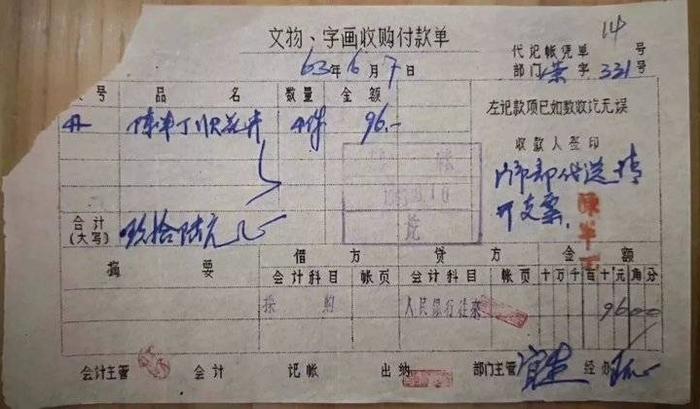 14
文物、字画收购付款单
代记帐凭单 号
63年6月7日
部门 字331号
号 品名 数量 金额
左记款项已如数收讫无误
陈半丁 花卉 4件 96.-
收款人签印
门市部代送请
开支票
陈半丁
合计
(大写) 玖拾陆元
摘要 借方 贷方 金额
会计科目 帐页 会计科目 帐页 十万千百十元角分
采购 人民银行往来 9600
会计主管 会计 记帐 出纳 部门主管 经办